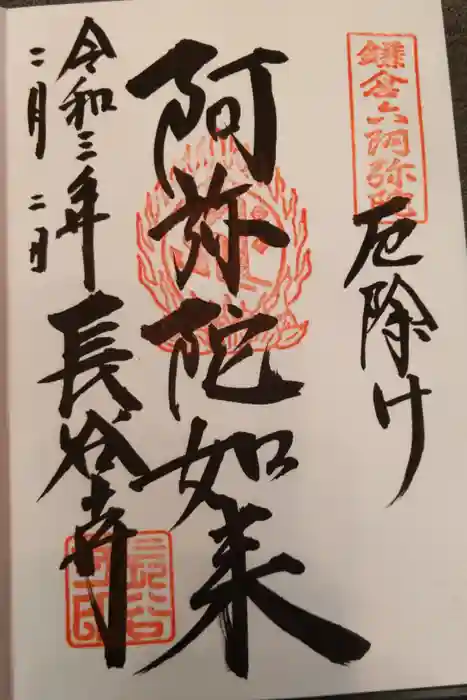 鎌倉六阿弥陀
厄除け
阿弥陀如来
令和三年
二月二日
長谷寺